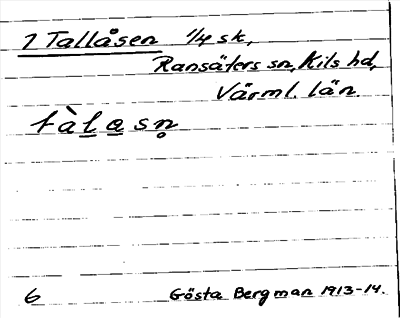 7 Tallåsen 1/4 sk,
Ransäters sn, Kils hd,
Värml. län.
tàlasn̥
6 Gösta Bergman 1913-14.